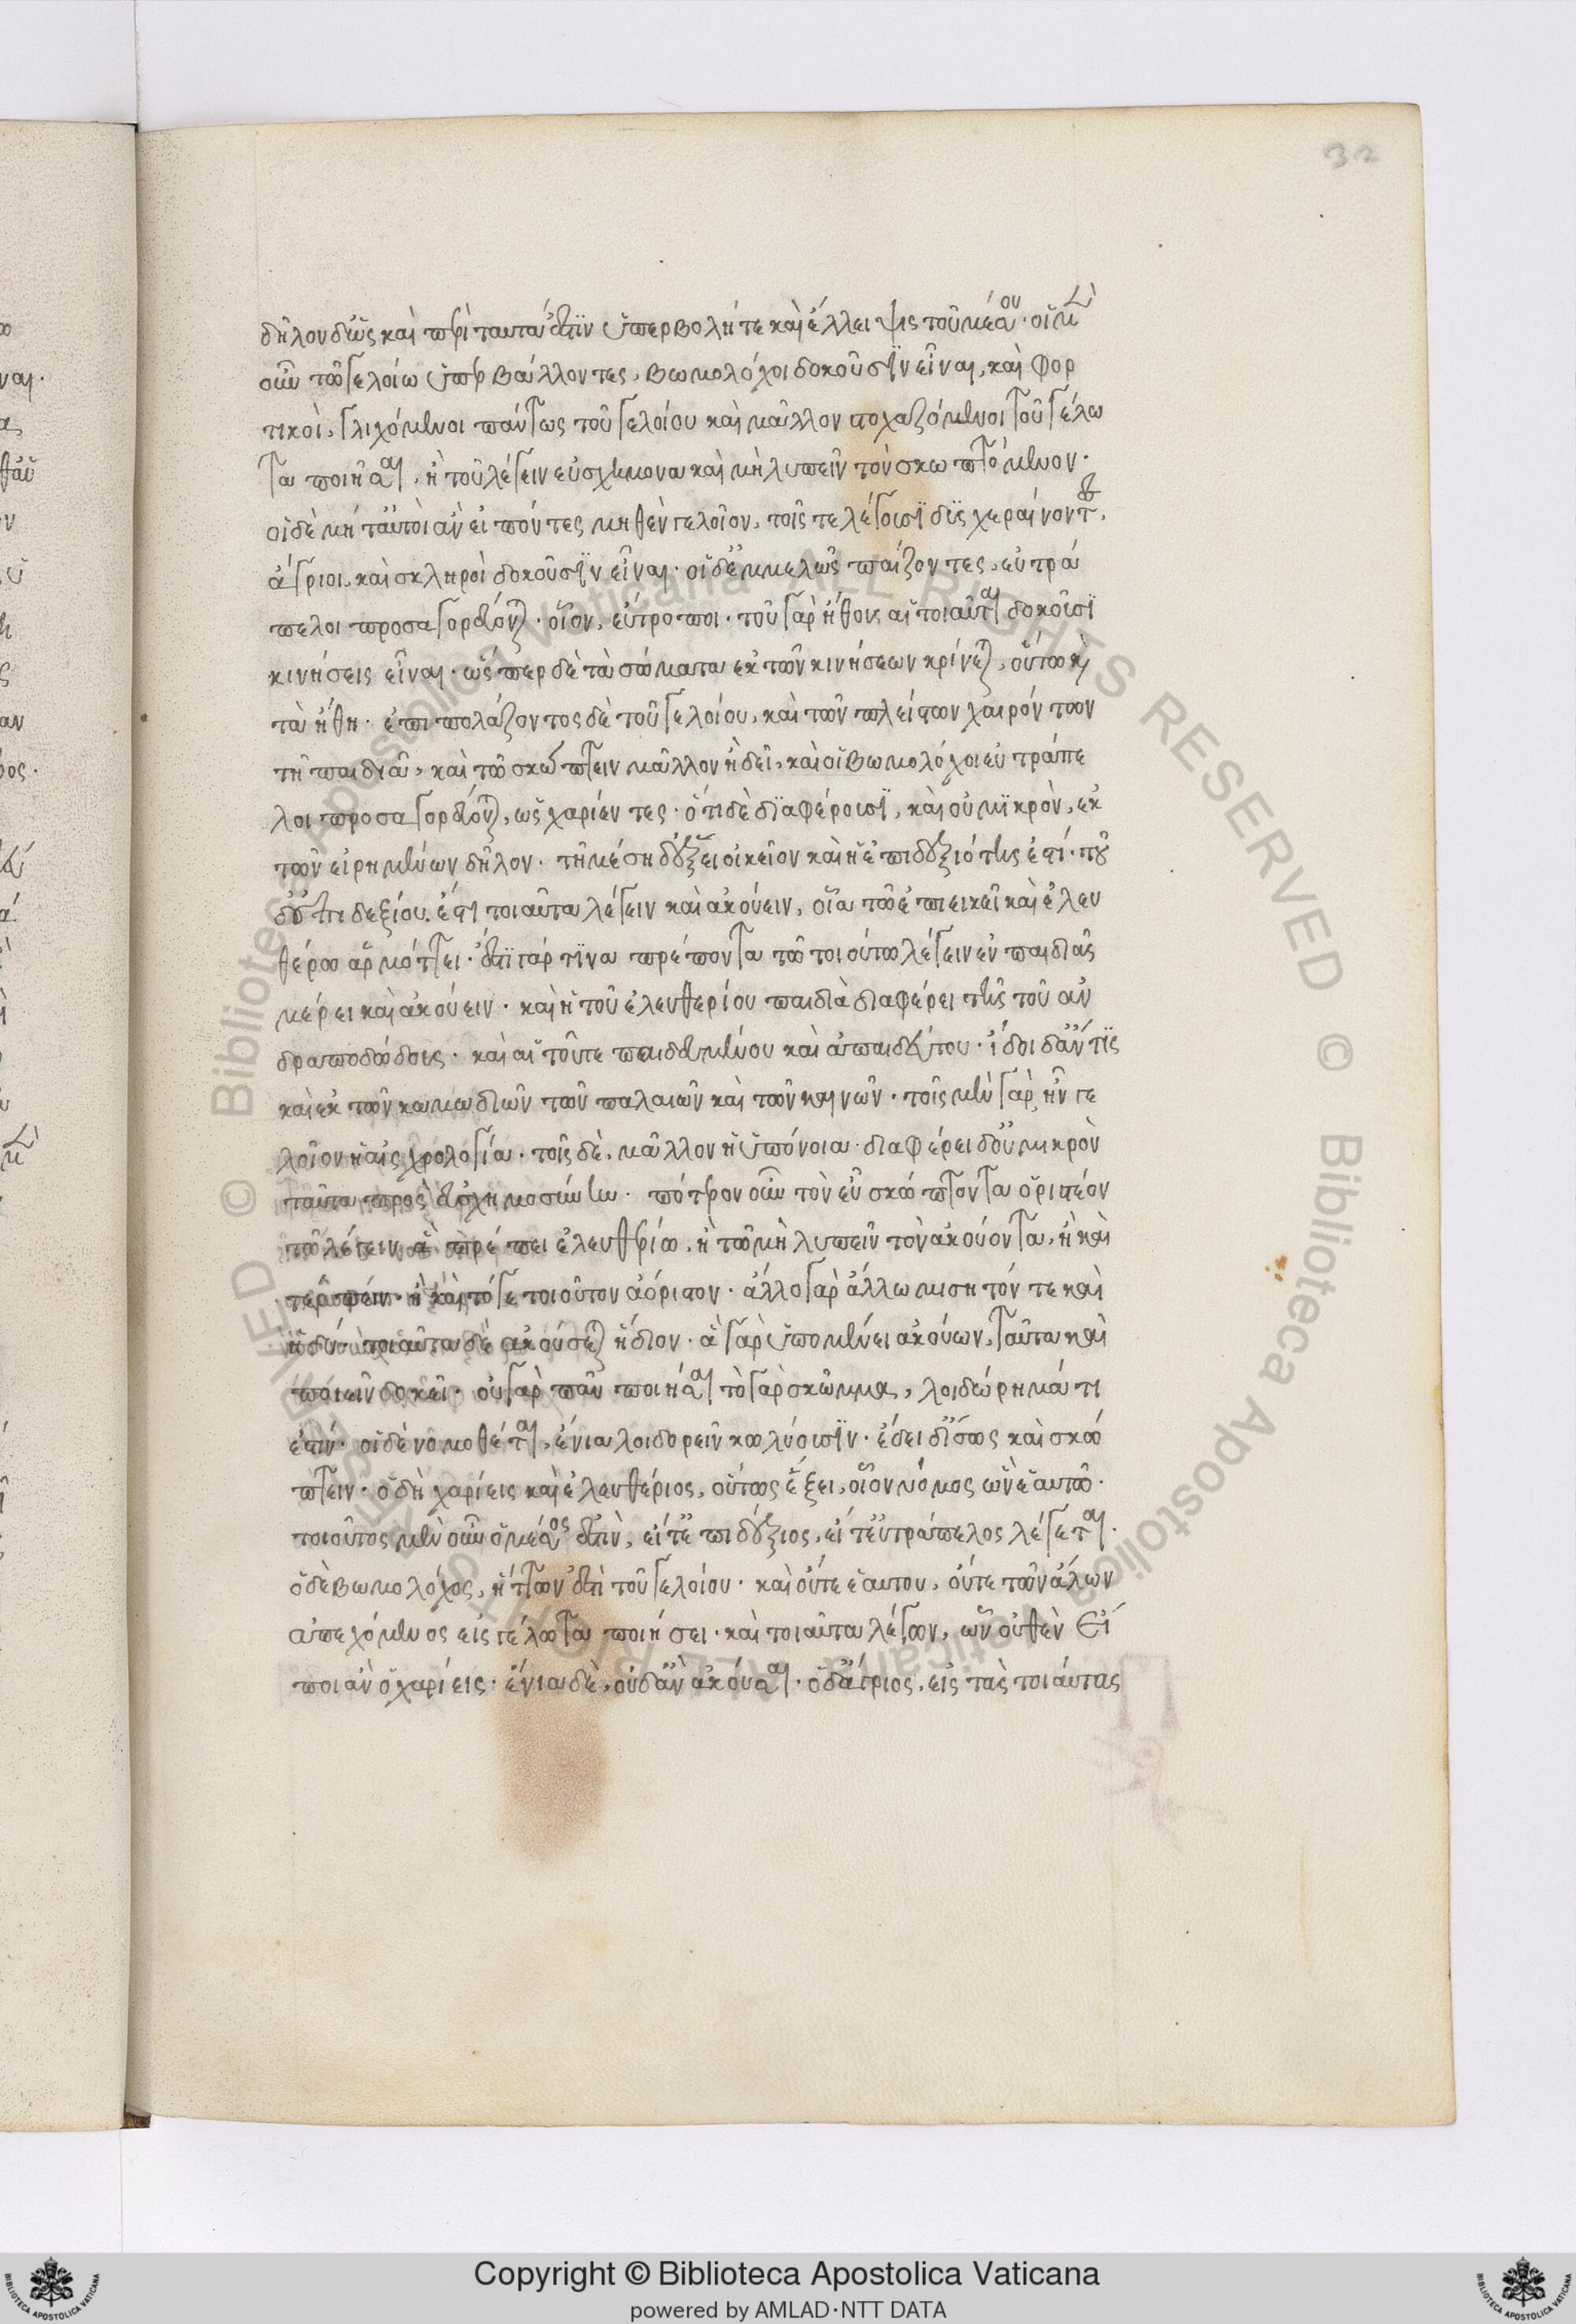 32
δῆλον δ' ὡς καὶ περὶ ταῦτα ἐστὶν ὑπερβολή τε καὶ ἔλλειψις τοῦ μέσου · οἱ μὲν
οὖν τῶ γελοίω ὑπερβάλλοντες, βωμολόχοι δοκοῦσιν εἶναι, καὶ φορ
τικοὶ, γλιχόμενοι πάντως τοῦ γελοίου καὶ μᾶλλον στοχαζόμενοι τοῦ γέλω
τα ποιῆσαι, ἢ τοῦ λέγειν εὐσχήμονα καὶ μὴ λυπεῖν τὸν σκωπτόμενον ·
οἱ δὲ μήτ' αὐτοὶ ἂν εἰπόντες μηθὲν γελοῖον, τοῖς τε λέγουσι δυσχεραίνοντες,
ἄγριοι, καὶ σκληροὶ δοκοῦσιν εἶναι · οἱ δ' ἐμμελῶς παίζοντες, εὐτρά
πελοι προσαγορεύονται · οἷον, εὔτροποι · τοῦ γὰρ ἤθους αἱ τοιαῦται δοκοῦσι
κινήσεις εἶναι · ὥσπερ δὲ τὰ σώματα ἐκ τῶν κινήσεων κρίνεται, οὕτω καὶ
τὰ ἤθη · ἐπιπολάζοντος δὲ τοῦ γελοίου, καὶ τῶν πλείστων χαιρόντων
τῆ παιδιᾶ, καὶ τῶ σκώπτειν μᾶλλον ἢ δεῖ, καὶ οἱ βωμολόχοι εὐτράπε
λοι προσαγορεύονται, ὡς χαρίεντες · ὅτι δὲ διαφέρουσι, καὶ οὐ μικρὸν, ἐκ
τῶν εἰρημένων δῆλον · τῆ μέση δ' ἕξει οἰκεῖον καὶ ἡ ἐπιδεξιότης ἐστί · τοῦ
δ' ἐπιδεξίου ἐστι τοιαῦτα λέγειν καὶ ἀκούειν, οἷα τῶ ἐπιεικεῖ καὶ ἐλευ
θέρω ἁρμόττει · ἔστι γάρ τινα πρέποντα τῶ τοιούτω λέγειν ἐν παιδιᾶς
μέρει καὶ ἀκούειν · καὶ ἡ τοῦ ἐλευθερίου παιδιὰ διαφέρει τῆς τοῦ ἀν
δραποδώδους · καὶ αἱ τοῦτε πεπαιδευμένου καὶ ἀπαιδεύτου · ἴδοι δ' ἄν τις
καὶ ἐκ τῶν κωμωδιῶν τῶν παλαιῶν καὶ τῶν καινῶν · τοῖς μὲν γὰρ ἦν γε
λοῖον ἡ αἰσχρολογία · τοῖς δὲ, μᾶλλον ἡ ὑπόνοια · διαφέρει δ' οὐ μικρὸν
ταῦτα πρὸς εὐσχημοσύνην · πότερον οὖν τὸν εὖ σκώπτοντα ὁριστέον
τῶ λέγειν ἃ πρέπει ἐλευθερίω, ἢ τῶ μὴ λυπεῖν τὸν ἀκούοντα, ἢ καὶ
τέρπειν · ἢ καὶ τόγε τοιοῦτον ἀόριστον · ἄλλο γὰρ ἄλλω μισητόν τε καὶ
ἡδύ · τοιαῦτα δὲ ἀκούσεται ἥδιον · ἃ γὰρ ὑπομένει ἀκούων, ταῦτα καὶ
ποιεῖν δοκεῖ · οὐ γὰρ πᾶν ποιήσαι τὸ γὰρ σκῶμμα, λοιδώρημά τι
ἐστίν · οἱ δὲ νομοθέται, ἔνια λοιδορεῖν κωλύουσιν · ἔδει δ' ἴσως καὶ σκώ
πτειν · ὁ δὴ χαρίεις καὶ ἐλευθέριος, οὕτως ἕξει, οἷον νόμος ὢν ἑαυτῶ ·
τοιοῦτος μὲν οὖν ὁ μέσος ἐστὶν, εἴτ' ἐπιδέξιος, εἴτ' εὐτράπελος λέγεται ·
ὁ δὲ βωμολόχος, ἥττων ἐστὶ τοῦ γελοίου · καὶ οὔτε ἑαυτου, οὔτε τῶν ἄλων
ἀπεχόμενος εἰ γέλωτα ποιήσει · καὶ τοιαῦτα λέγων, ὧν οὐθὲν εἴ
ποι ἂν ὁ χαρίεις · ἔνια δὲ, οὐδ' ἂν ἀκούσαι · ὁ δ' ἄγριος, εἰς τὰς τοιαύτας
© Biblioteca Apostolica Vaticana ALL RIGHTS RESERVED
Copyright © Biblioteca Apostolica Vaticana
powered by AMLAD·NTT DATA